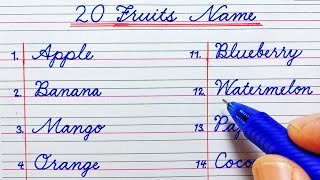 20 Fruits Name
1. Apple
2. Banana
3. Mango
4. Orange
11. Blueberry
12. Watermelon
13.
14.